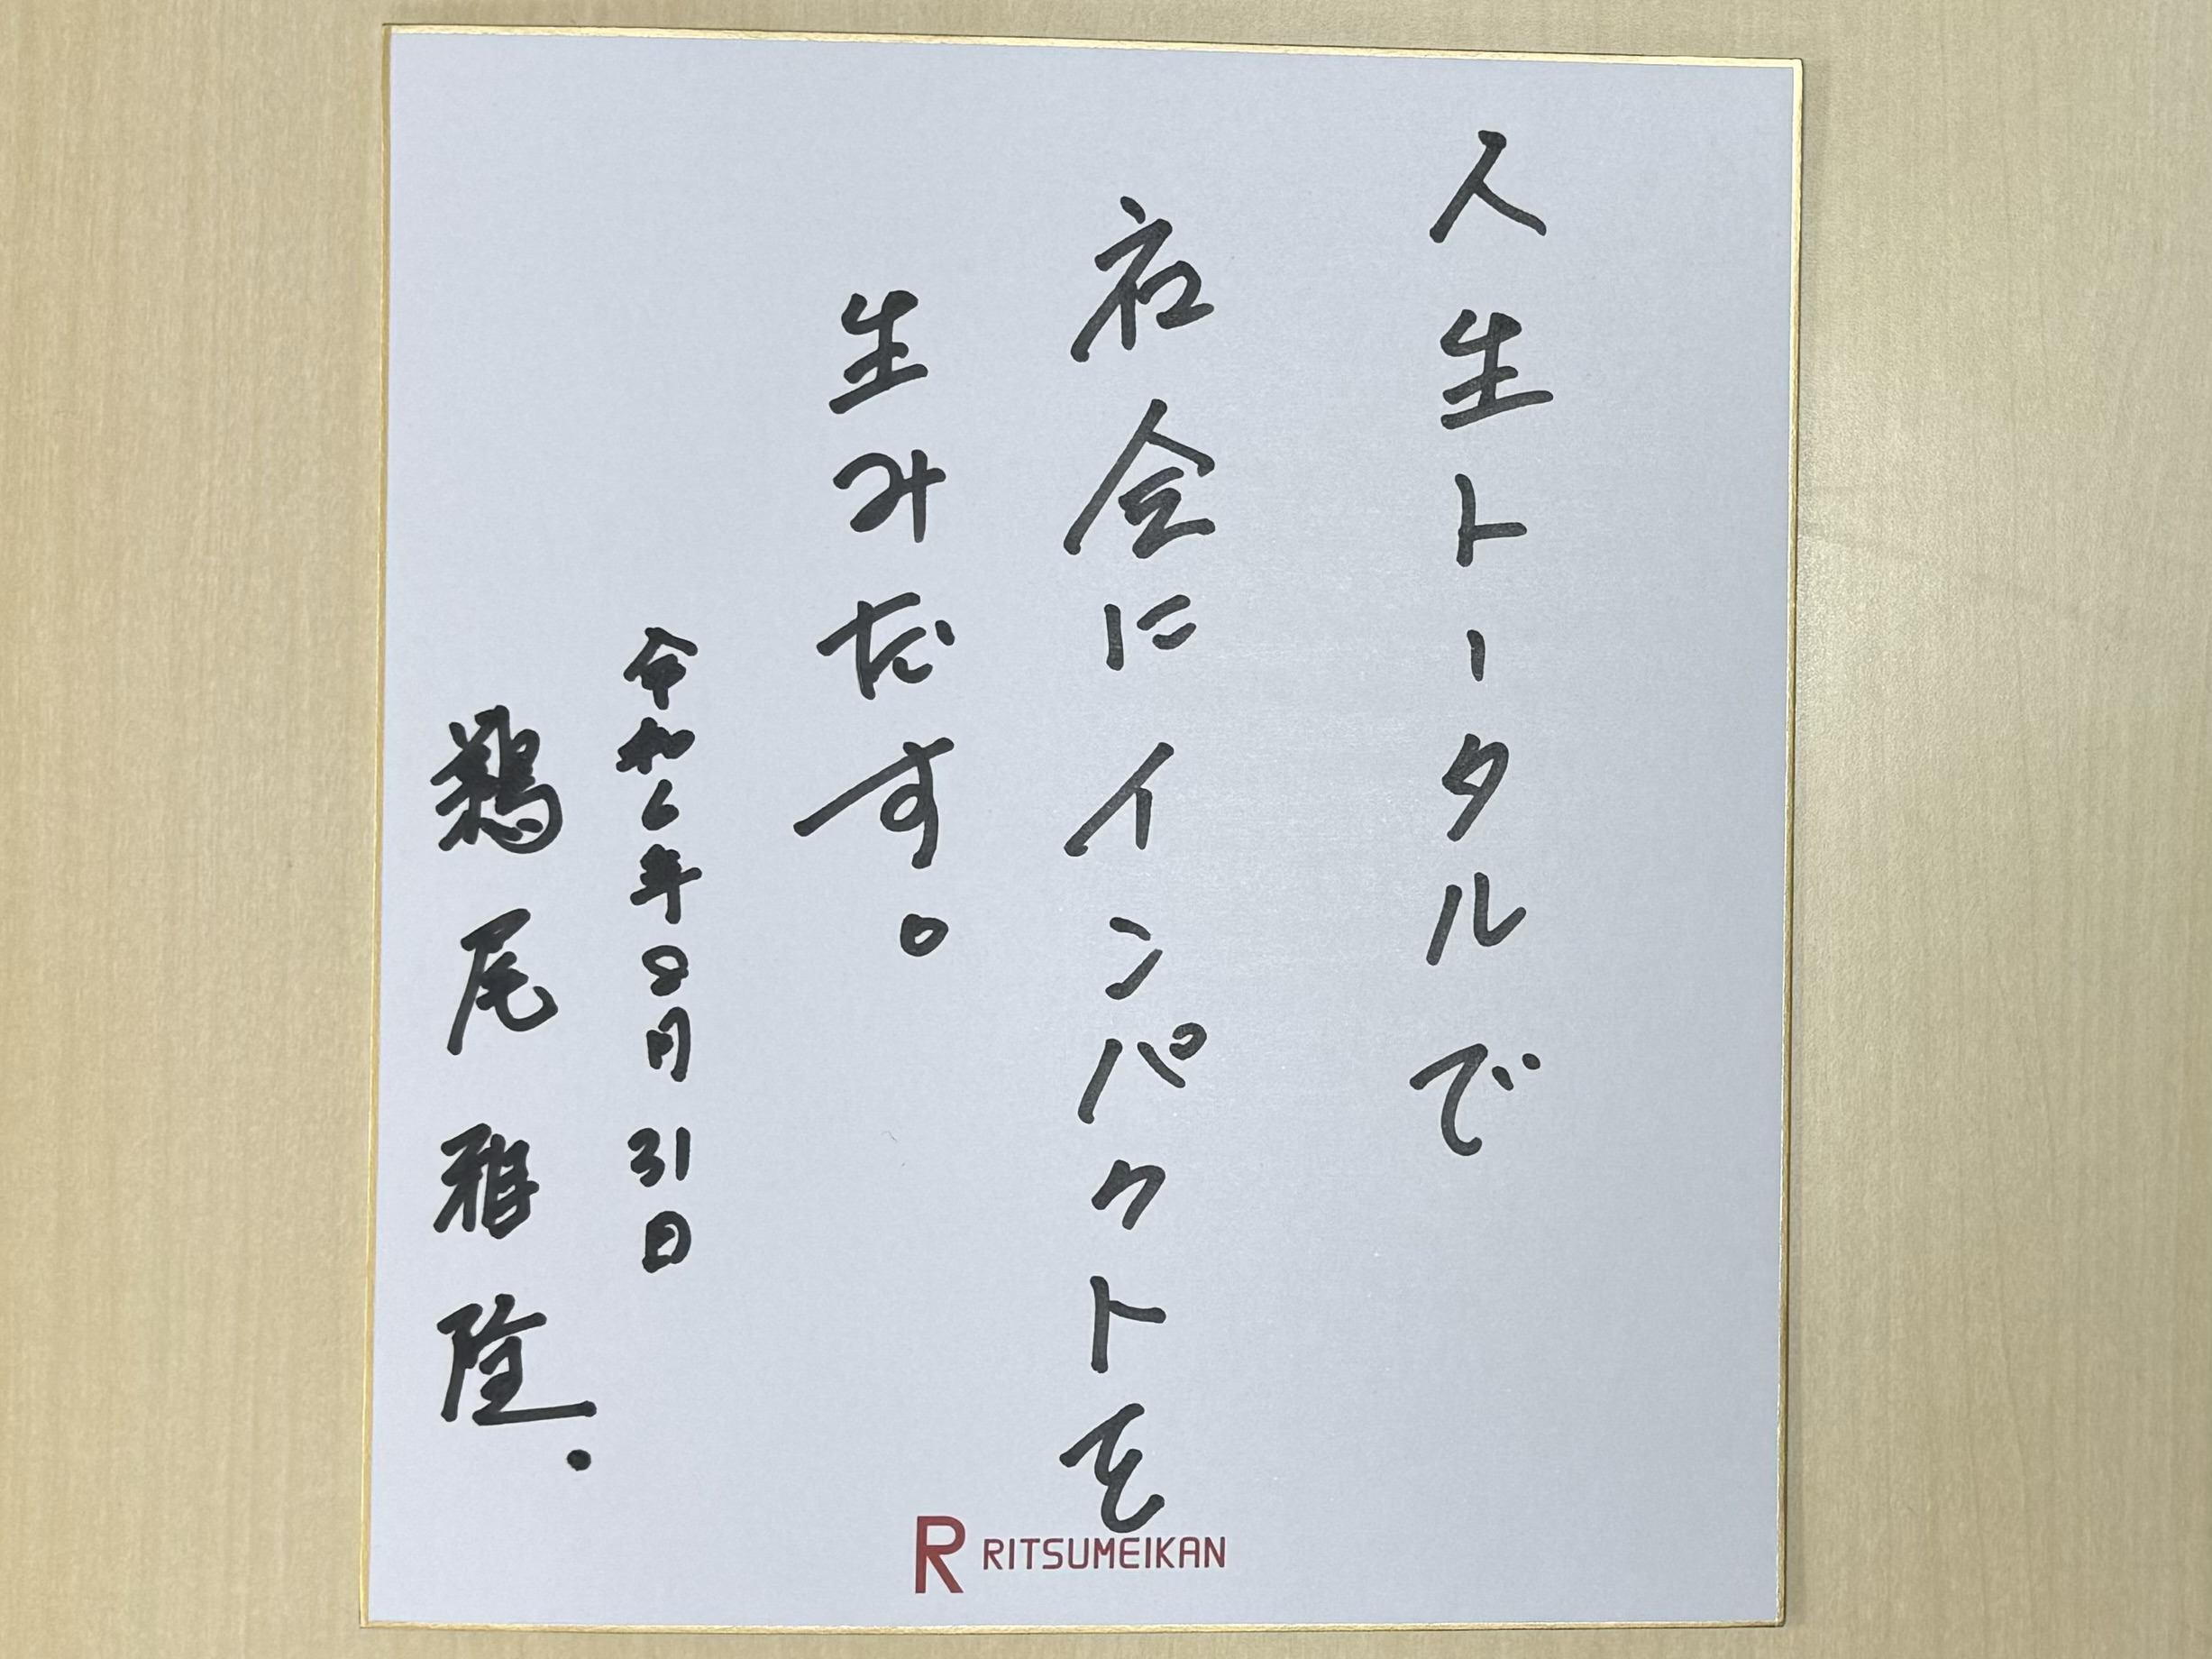 人生トータルで
社会にインパクトを
生みだす。
令和6年8月31日
鵜尾雅隆.
R RITSUMEIKAN